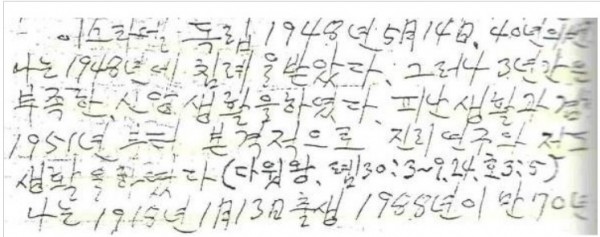 이스라엘 독립 1948년 5月14日, 40년의
나는 1948년에 침례을 받았다. 그러나 3년간은
부족한 신앙 생활을 하였다. 피난 생활과
1951년 부터 본격적으로 진리 연구와 전도
생활을 하였다 (다윗왕, 렘30:3~9, 24, 호3:5)
나는 1918년 1月13日 출생 1988년이 만 70년